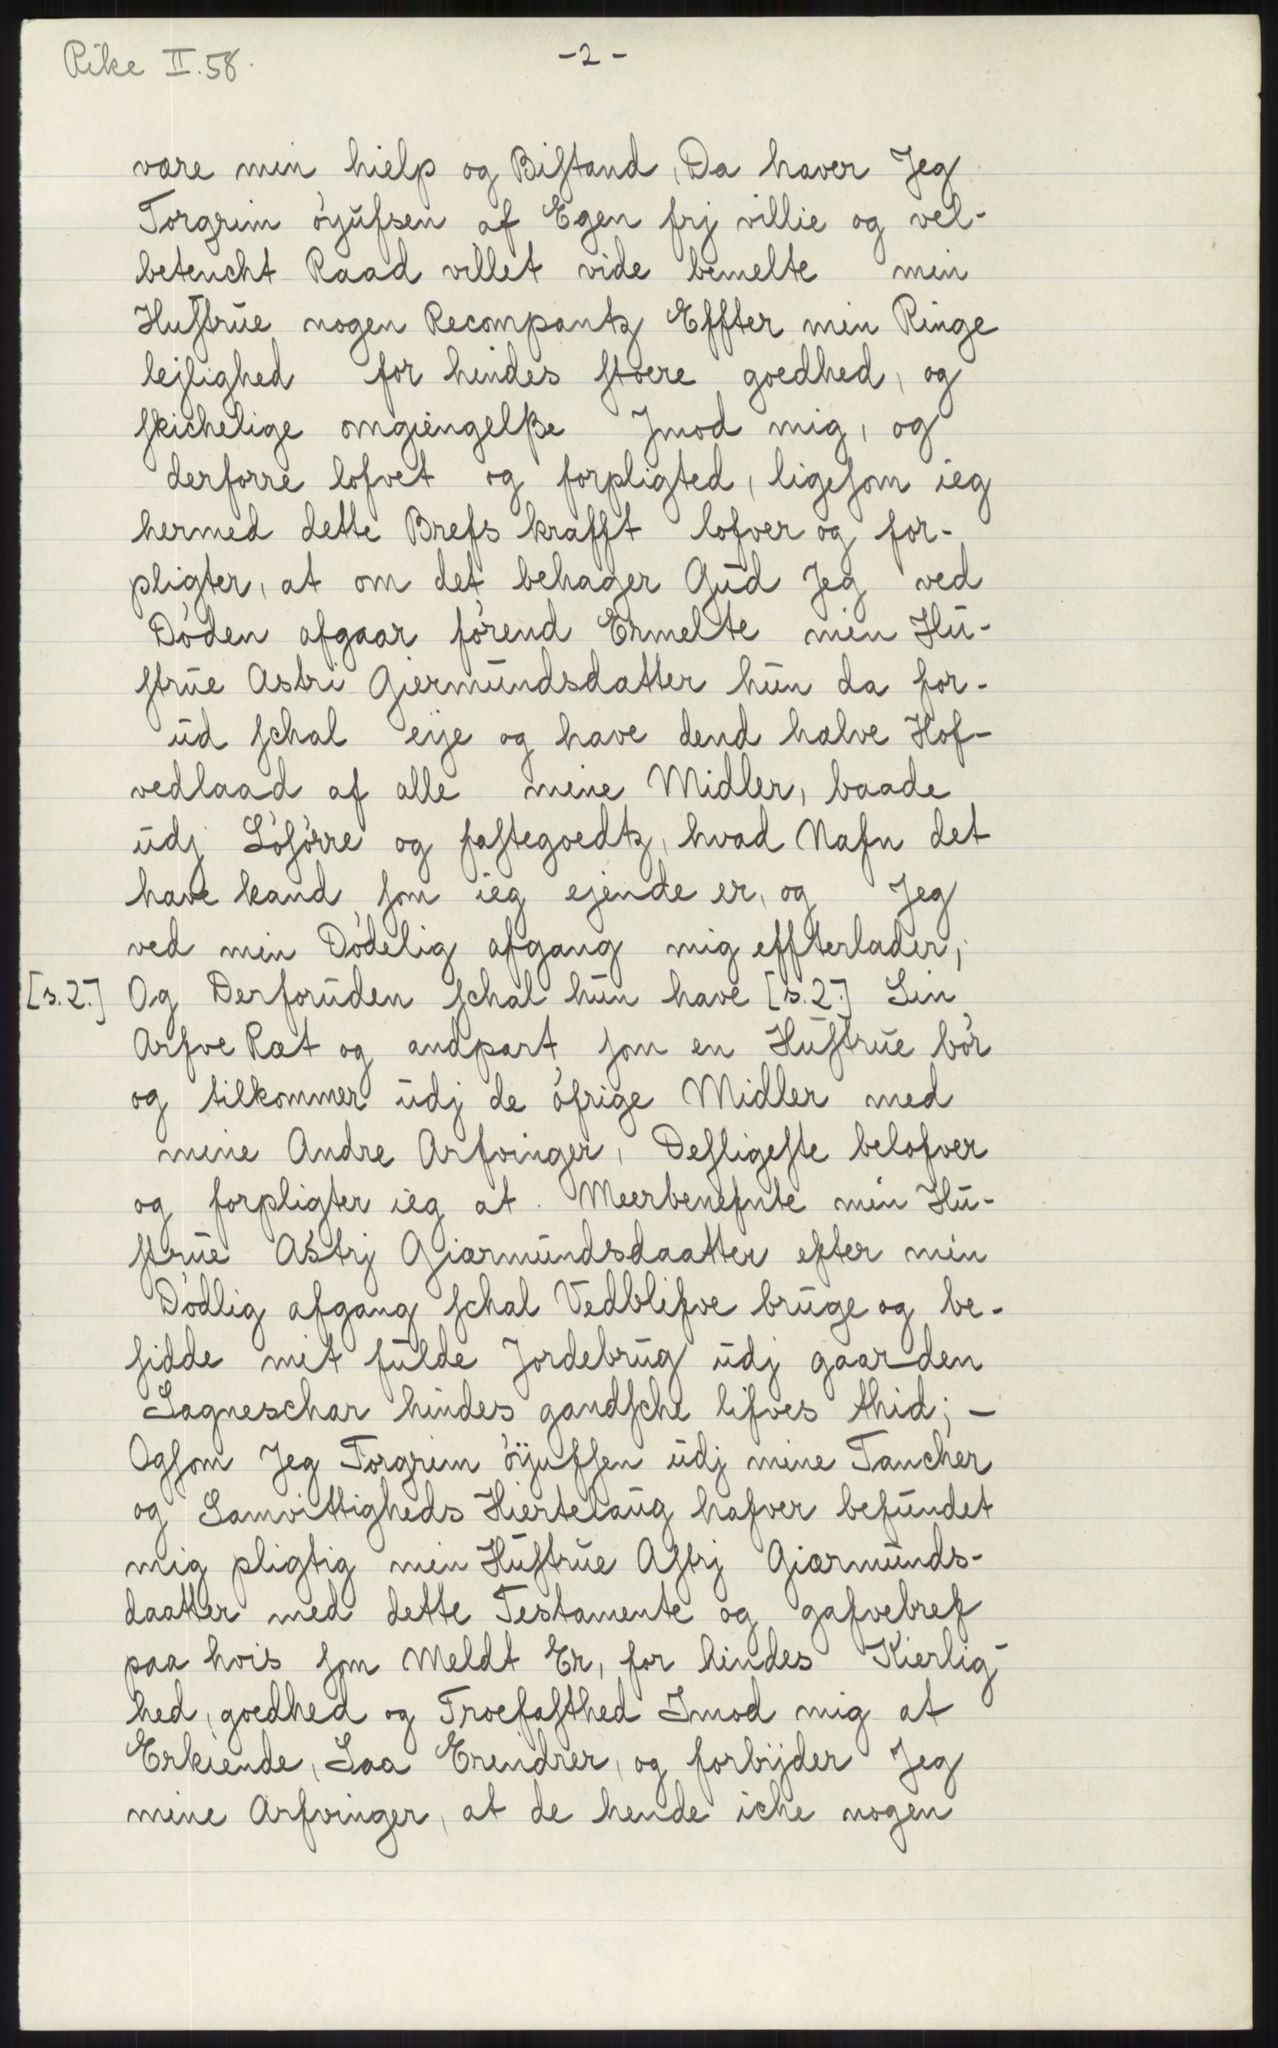 Rike II.58.
-2-
være min hielp og Biſtand, Da haver Jeg
Torgrim öÿufsen af Egen frj villie og vel-
betencht Raad villet vide bemelte min
Huſtrue nogen Recompantz Effter min Ringe
lejlighed for hindes ſtoere goedhed, og
ſkichelige omgiengelße Jmod mig, og
derforre lofvet og forpligted, ligeſom ieg
hermed dette Brefs krafft lofver og for-
pligter, at om det behager Gud Jeg ved
Döden afgaar förend Ermelte min Hu-
ſtrue Astri Giermundsdatter hun da for-
ud ſchal eije og have dend halve Hof-
vedlaad af alle mine Midler, baade
udj Löſörre og faſtegoedtz, hvad Nafn det
have kand ſom ieg ejende er, og Jeg
ved min Dödelig afgang mig effterlader,
[s.2.] Og Derforuden ſchal hun have [s.2.] Sin
Arfve Ræt og andpart ſom en Huſtrue bör
og tilkommer udj de öfrige Midler med
mine Andre Arfvinger, Desligeſte belofver
og forpligter ieg at Meerbenefnte min Hu-
ſtrue Astrj Giærmundsdaatter efter min
Dödlig afgang ſchal Vedblifve bruge og be-
ſidde mit fulde Jordebrug udj gaarden
Sagneschar hindes gandſche lifves thid; -
Ogſom Jeg Torgrim öÿufſen udj mine Tancher
og Samvittigheds Hiertelaug hafver befundet
mig pligtig min Huſtrue Aſtrj Giærmunds-
daatter med dette Testamente og gafvebref
paa hvis ſom Meldt Er, for hindes Kierlig-
hed, goedhed og Troefaſthed Imod mig at
Erkiende, Saa Erindrer, og forbijder Jeg
mine Arfvinger, at de hende iche nogen